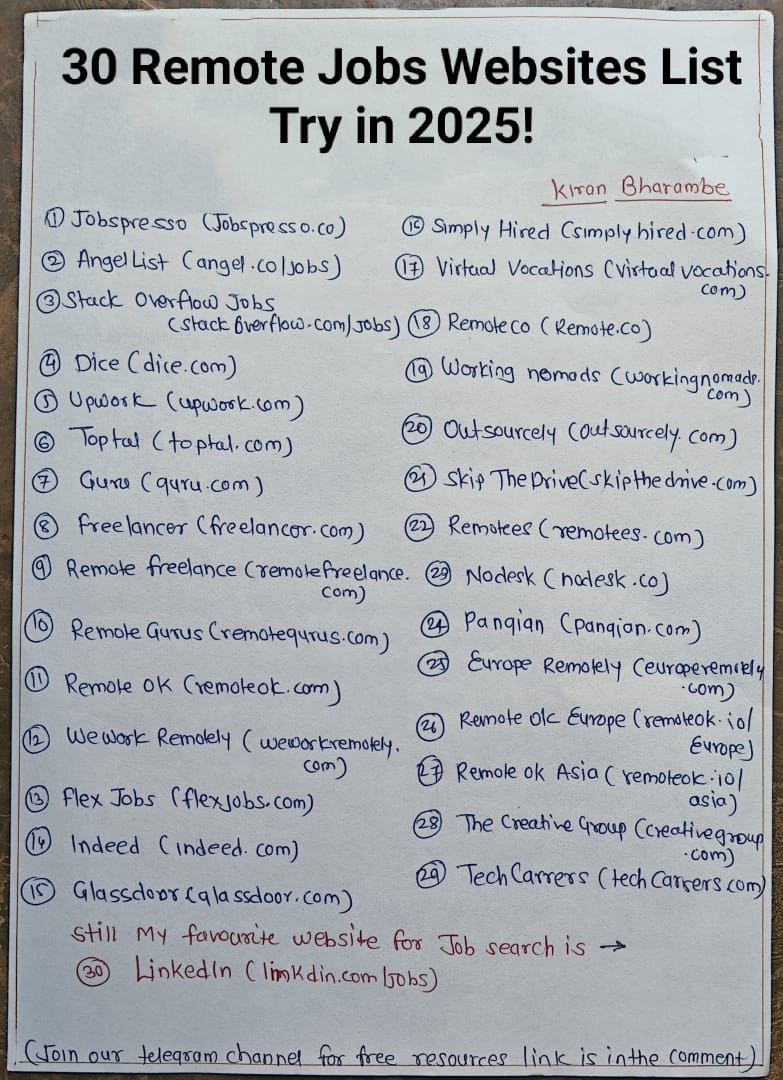 30 Remote Jobs Websites List
Try in 2025!
Kiran Bharambe
① Jobspresso (Jobspresso.co)
② Angel List (angel.co/jobs)
③ Stack Overflow Jobs
(stack Overflow.com/jobs)
④ Dice (dice.com)
⑤ Upwork (upwork.com)
⑥ Toptal (toptal.com)
⑦ Guru (guru.com)
⑧ freelancer (freelancer.com)
⑨ Remote freelance (remotefreelance.
com)
⑩ Remote Gurus (remotegurus.com)
⑪ Remote OK (remoteok.com)
⑫ We Work Remotely (weworkremotely.
com)
⑬ Flex Jobs (flexjobs.com)
⑭ Indeed (indeed.com)
⑮ Glassdoor (glassdoor.com)
⑯ Simply Hired (simplyhired.com)
⑰ Virtual Vocations (virtual vocations.
com)
⑱ Remote co (Remote.co)
⑲ Working nomads (workingnomads.
com)
⑳ Outsourcely (outsourcely.com)
㉑ Skip The Drive (skipthedrive.com)
㉒ Remotees (remotees.com)
㉓ Nodesk (nodesk.co)
㉔ Pangian (pangian.com)
㉕ Europe Remotely (europeremotely
.com)
㉖ Remote Ok Europe (remoteok.io/
Europe)
㉗ Remote ok Asia (remoteok.io/
asia)
㉘ The Creative Group (creativegroup
.com)
㉙ Tech Carrers (tech Carrers.com)
Still My favourite website for Job search is →
㉚ LinkedIn (linkdin.com/jobs)
(Join our telegram channel for free resources link is in the comment)